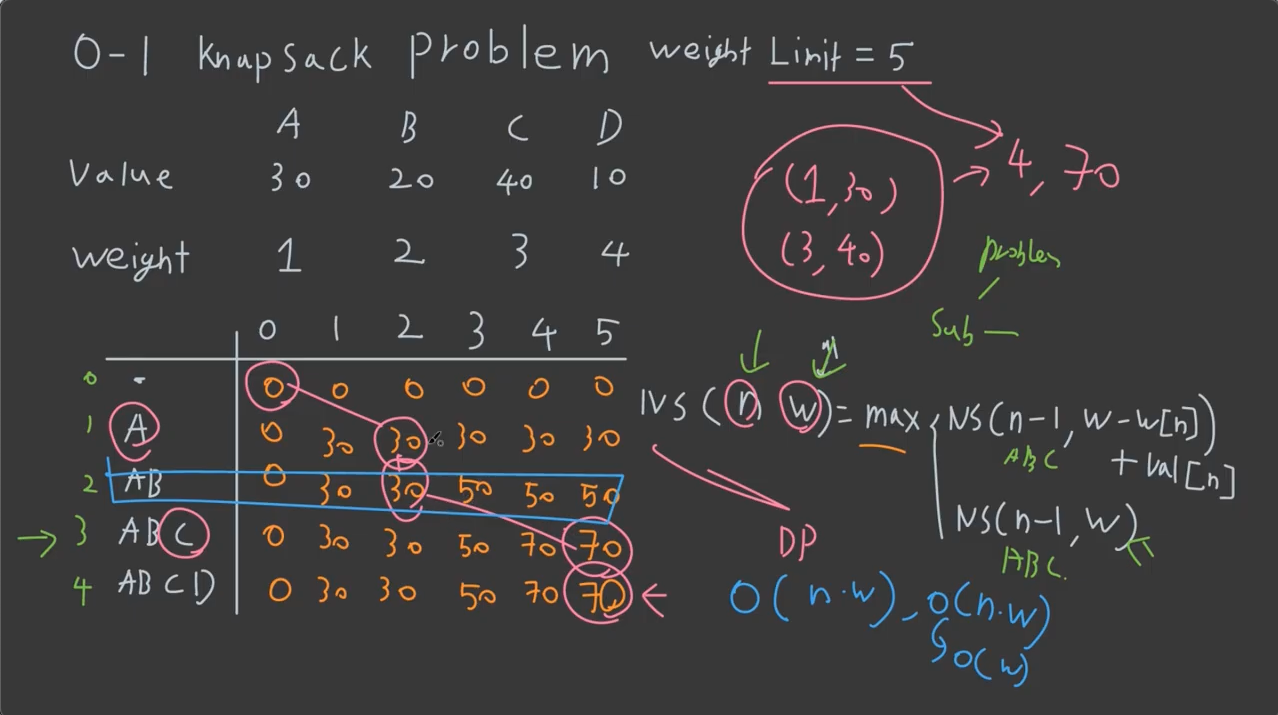 0-1 Knapsack Problem weight Limit = 5
A B C D
Value 30 20 40 10
weight 1 2 3 4
(1,30)
(3,40)
4, 70
problem
Sub
0 1 2 3 4 5
0 - 0 0 0 0 0 0
1 A 0 30 30 30 30 30
2 AB 0 30 30 50 50 50
3 ABC 0 30 30 50 70 70
4 ABCD 0 30 30 50 70 70
NS(n w) = max
NS(n-1, w-w[n])
+ val[n]
ABC
NS(n-1, w)
ABC.
DP
O(n·w), O(n·w)
O(w)